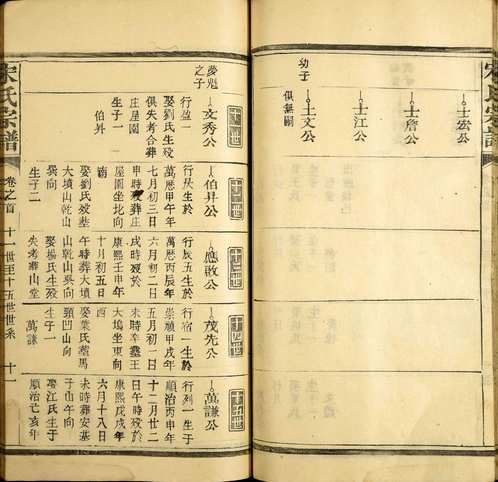 宋氏宗譜
士宏公
士詹公
士江公
幼子
士文公
俱無嗣
夢魁
之子
文秀公
行盈一
娶劉氏生歿
俱失考合葬
庄屋園
生子一
伯昇
伯昇公
行辰生於
萬厯甲午年
七月初三日
申時歿葬庄
屋園坐北向
南
娶劉氏歿葬
大墳山乾山
巽向
生子二
應啟公
行辰五生於
萬厯丙辰年
六月初二日
戌時歿於
康熙壬申年
十月初五日
午時葬大墳
山乾山巽向
娶楊氏生歿
失考葬山堂
茂先公
行宿一生於
崇禎甲戌年
五月初一日
未時卒葬王
大塢坐東向
西
娶葉氏葬馬
頸凹山向
生子一
萬謙
萬謙公
行列一生于
順治丙申年
十二月廿二
日午時歿於
康熙戊戌年
六月十八日
未時葬安基
子山午向
娶江氏生于
順治己亥年
宋氏宗譜
卷之首
十一世至十五世世系
十一